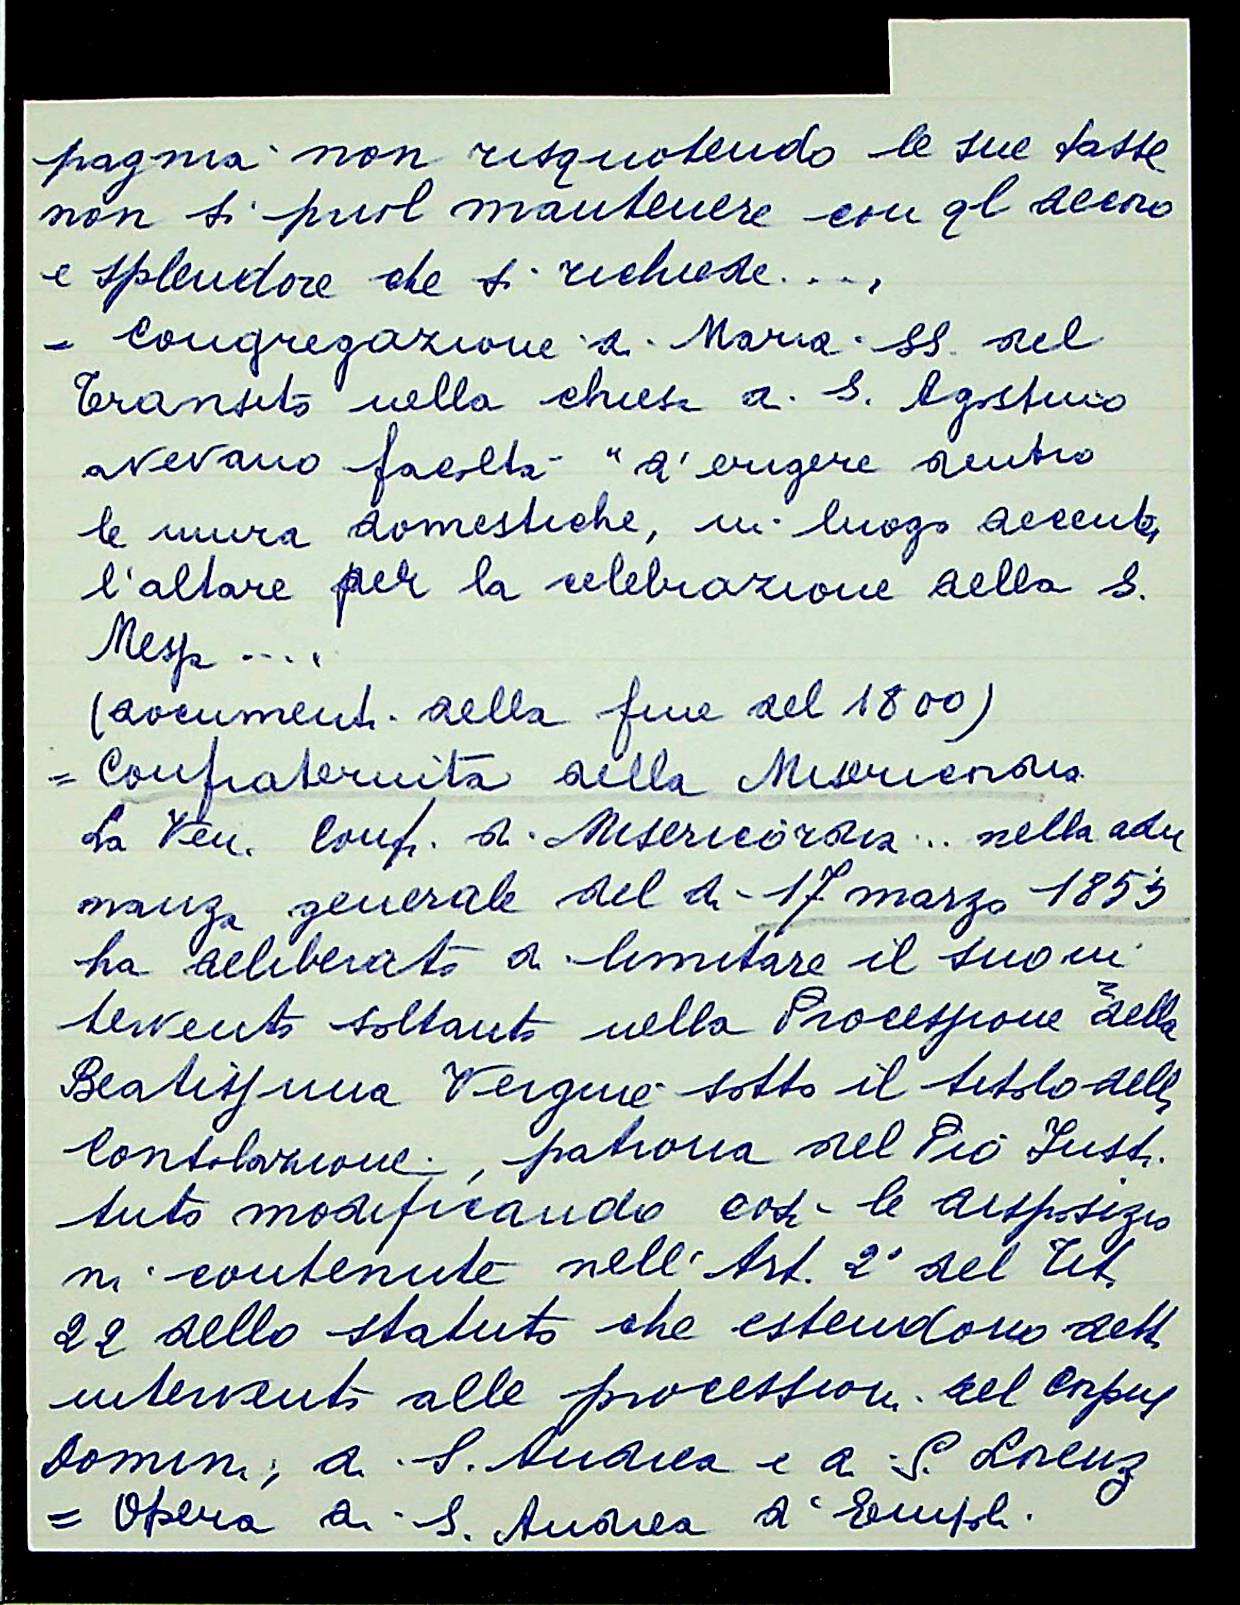 pagnia non risquotendo le sue tasse
non si puol mantenere con ql decoro
e splendore che si richiede....
= Congregazione di Maria SS. del
Transito nella chiesa di S. Agostino
avevano facoltà "d'erigere dentro
le mura domestiche, in luogo decente,
l'altare per la celebrazione della S.
Messa ....
(documenti della fine del 1800)
= Confraternita della Misericordia
La Ven. Conf. di Misericordia .. nella adu
nanza generale del dì 17 marzo 1855
ha deliberato di limitare il suo in
tervento soltanto nella Processione della
Beatissima Vergine sotto il titolo della
Consolazione, patrona del Pio Isti
tuto modificando così le disposizio
ni contenute nell'Art. 2° del Tit.
22 dello statuto che estendono detti
interventi alle processioni del Corpus
Domini, di S. Andrea e di S. Lorenzo
= Opera di S. Andrea d'Empoli.